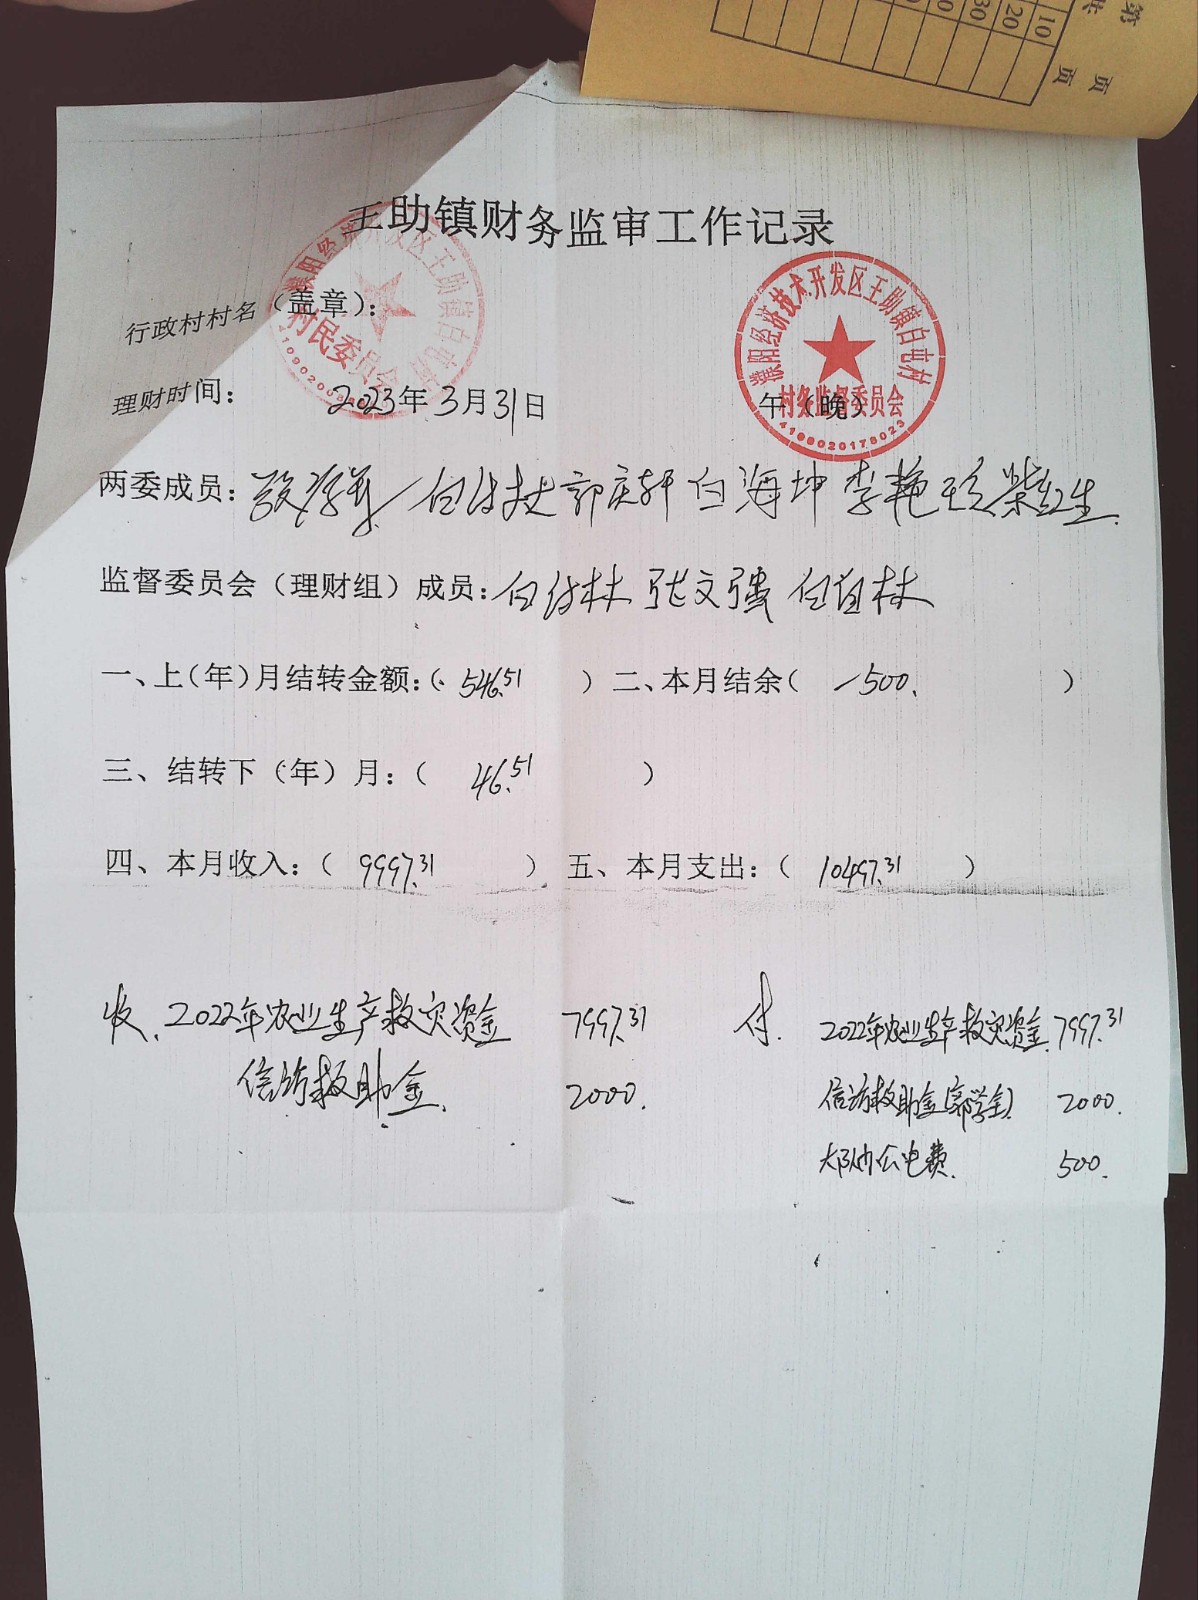 第 页
共 页
10
20
30
王助镇财务监审工作记录
行政村村名（盖章）：
濮阳经济技术开发区王助镇白屯村
村民委员会
濮阳经济技术开发区王助镇白屯村
村务监督委员会
4109020178023
理财时间： 2023年3月31日 午（晚）
两委成员： 白付丈 郭庆轩 白海坤 李艳 柴红生
监督委员会（理财组）成员：白付林 张文强 白自林
一、上(年)月结转金额:( 546.51 ) 二、本月结余( -500. )
三、结转下（年）月：( 46.51 )
四、本月收入：( 9997.31 ) 五、本月支出：( 10497.31 )
收. 2022年农业生产救灾资金 7997.31
信访救助金. 2000.
付. 2022年农业生产救灾资金. 7997.31
信访救助金(郭学全) 2000.
大队办公电费. 500.